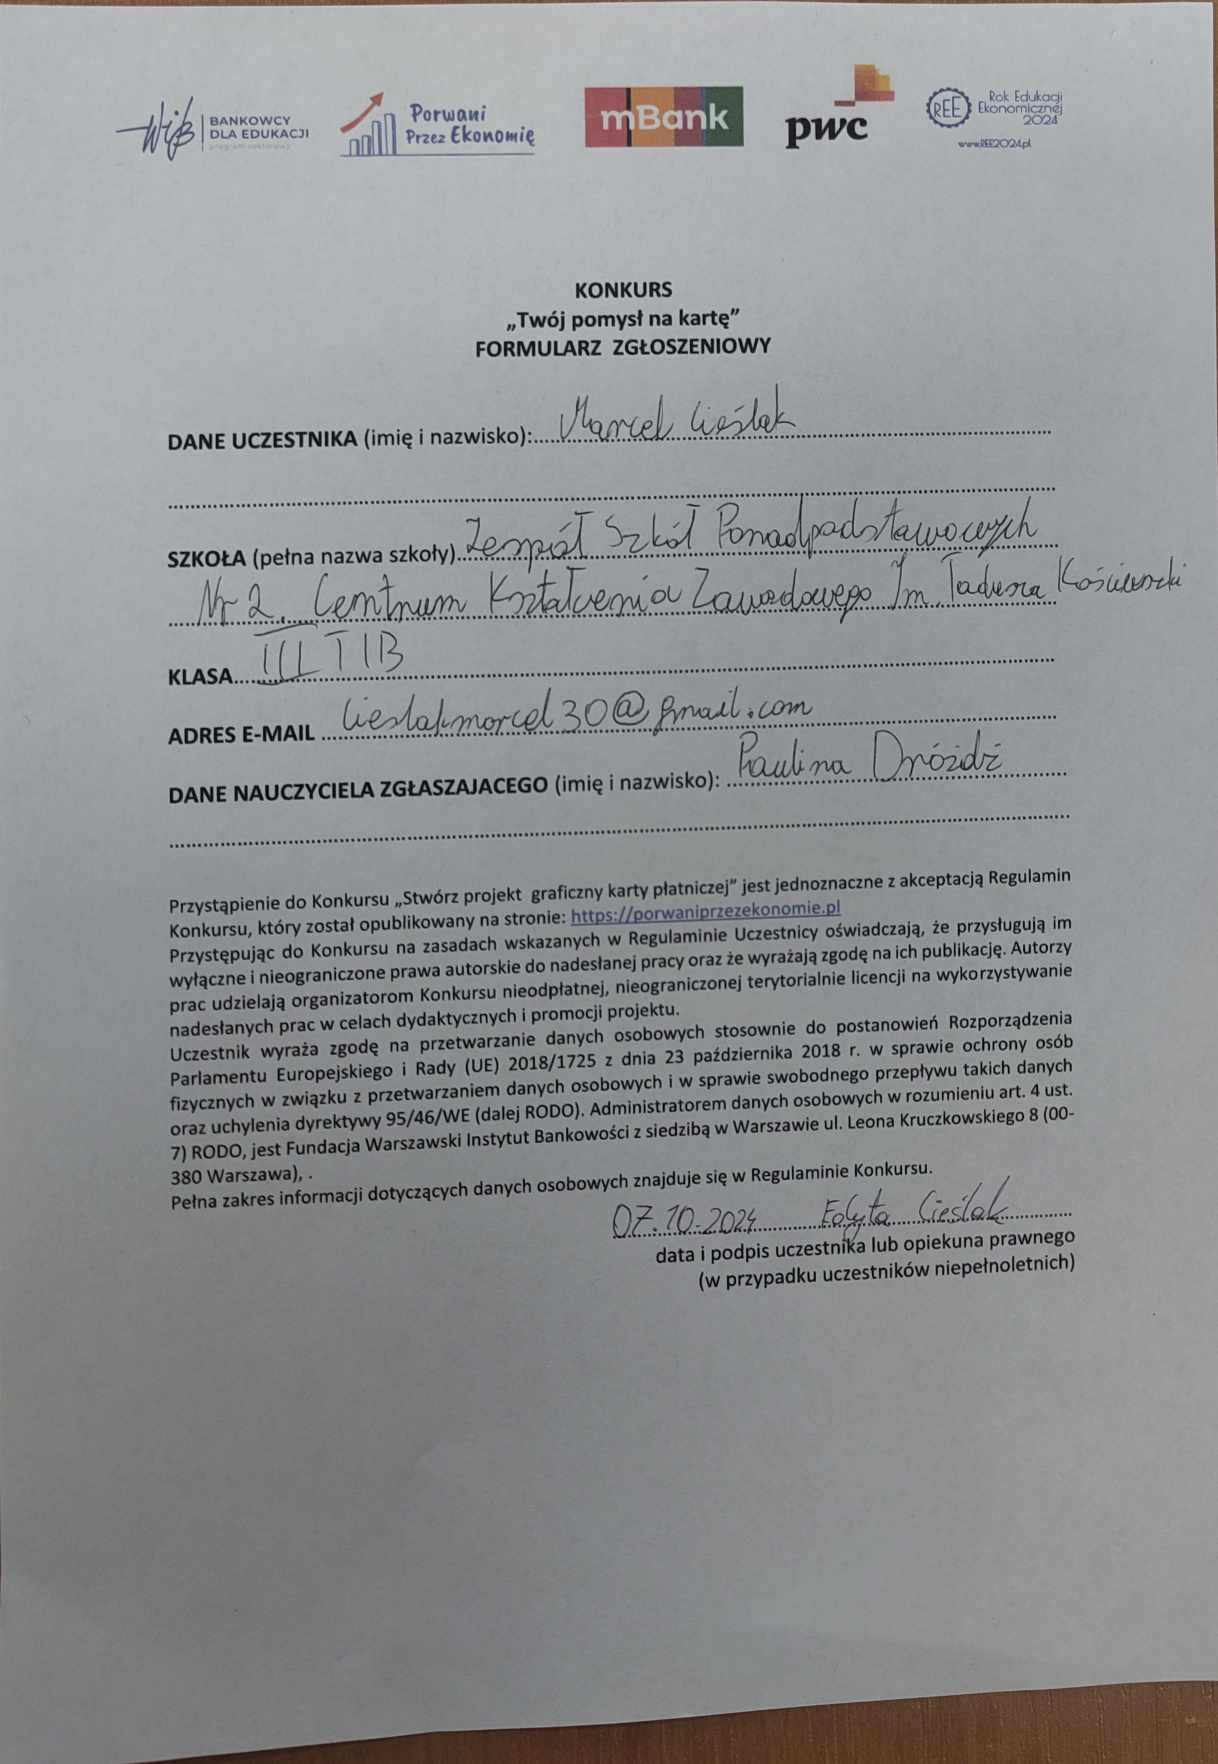 WiB BANKOWCY DLA EDUKACJI
Porwani Przez Ekonomię
mBank
pwc
REE Rok Edukacji Ekonomicznej 2024
www.REE2024.pl
KONKURS
„Twój pomysł na kartę”
FORMULARZ ZGŁOSZENIOWY
DANE UCZESTNIKA (imię i nazwisko): Marcel Cieślak
SZKOŁA (pełna nazwa szkoły) Zespół Szkół Ponadpodstawowych
Nr 2. Centrum Kształcenia Zawodowego Im. Tadeusza
KLASA III TIB
ADRES E-MAIL cieslakmarcel30@gmail.com
DANE NAUCZYCIELA ZGŁASZAJACEGO (imię i nazwisko): Paulina Dróżdż
Przystąpienie do Konkursu „Stwórz projekt graficzny karty płatniczej” jest jednoznaczne z akceptacją Regulamin
Konkursu, który został opublikowany na stronie: https://porwaniprzezekonomie.pl
Przystępując do Konkursu na zasadach wskazanych w Regulaminie Uczestnicy oświadczają, że przysługują im
wyłączne i nieograniczone prawa autorskie do nadesłanej pracy oraz że wyrażają zgodę na ich publikację. Autorzy
prac udzielają organizatorom Konkursu nieodpłatnej, nieograniczonej terytorialnie licencji na wykorzystywanie
nadesłanych prac w celach dydaktycznych i promocji projektu.
Uczestnik wyraża zgodę na przetwarzanie danych osobowych stosownie do postanowień Rozporządzenia
Parlamentu Europejskiego i Rady (UE) 2018/1725 z dnia 23 października 2018 r. w sprawie ochrony osób
fizycznych w związku z przetwarzaniem danych osobowych i w sprawie swobodnego przepływu takich danych
oraz uchylenia dyrektywy 95/46/WE (dalej RODO). Administratorem danych osobowych w rozumieniu art. 4 ust.
7) RODO, jest Fundacja Warszawski Instytut Bankowości z siedzibą w Warszawie ul. Leona Kruczkowskiego 8 (00-
380 Warszawa), .
Pełna zakres informacji dotyczących danych osobowych znajduje się w Regulaminie Konkursu.
07.10.2024 Edyta Cieślak
data i podpis uczestnika lub opiekuna prawnego
(w przypadku uczestników niepełnoletnich)